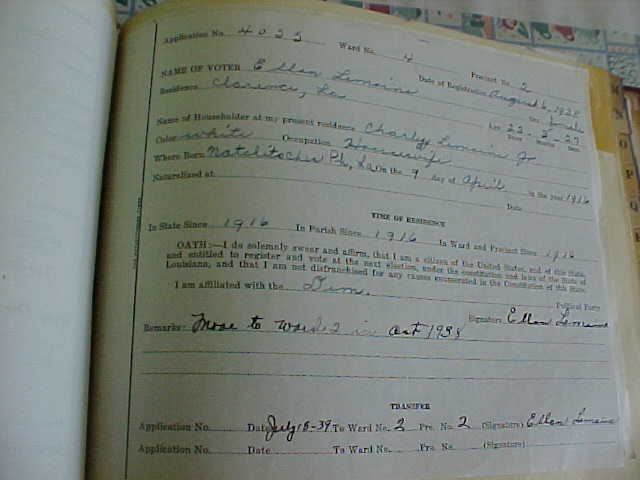 Application No. 4055 Ward No. 4 Precinct No. 2
NAME OF VOTER Ellen Lemoine Date of Registration August 6, 1938
Residence Clarence, La Sex female
Age 22 - 3 - 27
Years Months Days
Name of Householder at my present residence Charles Lemoine Jr
Color white Occupation Housewife
Where Born Natchitoches Ph, La On the 9 day of April in the year 1916
Naturalized at Date
TIME OF RESIDENCE
In State Since 1916 In Parish Since 1916 In Ward and Precinct Since 1916
OATH:—I do solemnly swear and affirm, that I am a citizen of the United States, and of this State,
and entitled to register and vote at the next election, under the constitution and laws of the State of
Louisiana, and that I am not disfranchised for any causes enumerated in the Constitution of this State.
I am affiliated with the Dem. Political Party
Signature Ellen Lemoine
Remarks: Move to ward 2 in Oct 1938
TRANSFER
Application No. Date July 18-39 To Ward No. 2 Pre. No. 2 (Signature) Ellen Lemoine
Application No. Date To Ward No. Pre. No. (Signature)
N
O
P
Q